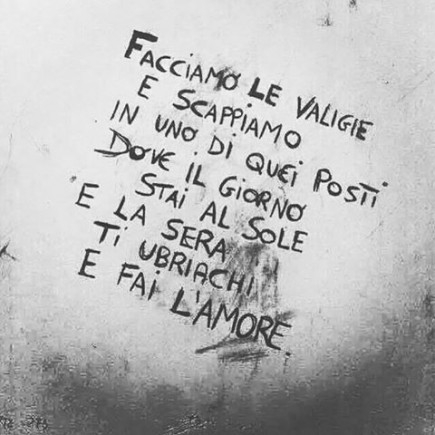 FACCIAMO LE VALIGIE
E SCAPPIAMO
IN UNO DI QUEI POSTI
DOVE IL GIORNO
STAI AL SOLE
E LA SERA
TI UBRIACHI
E FAI L'AMORE.